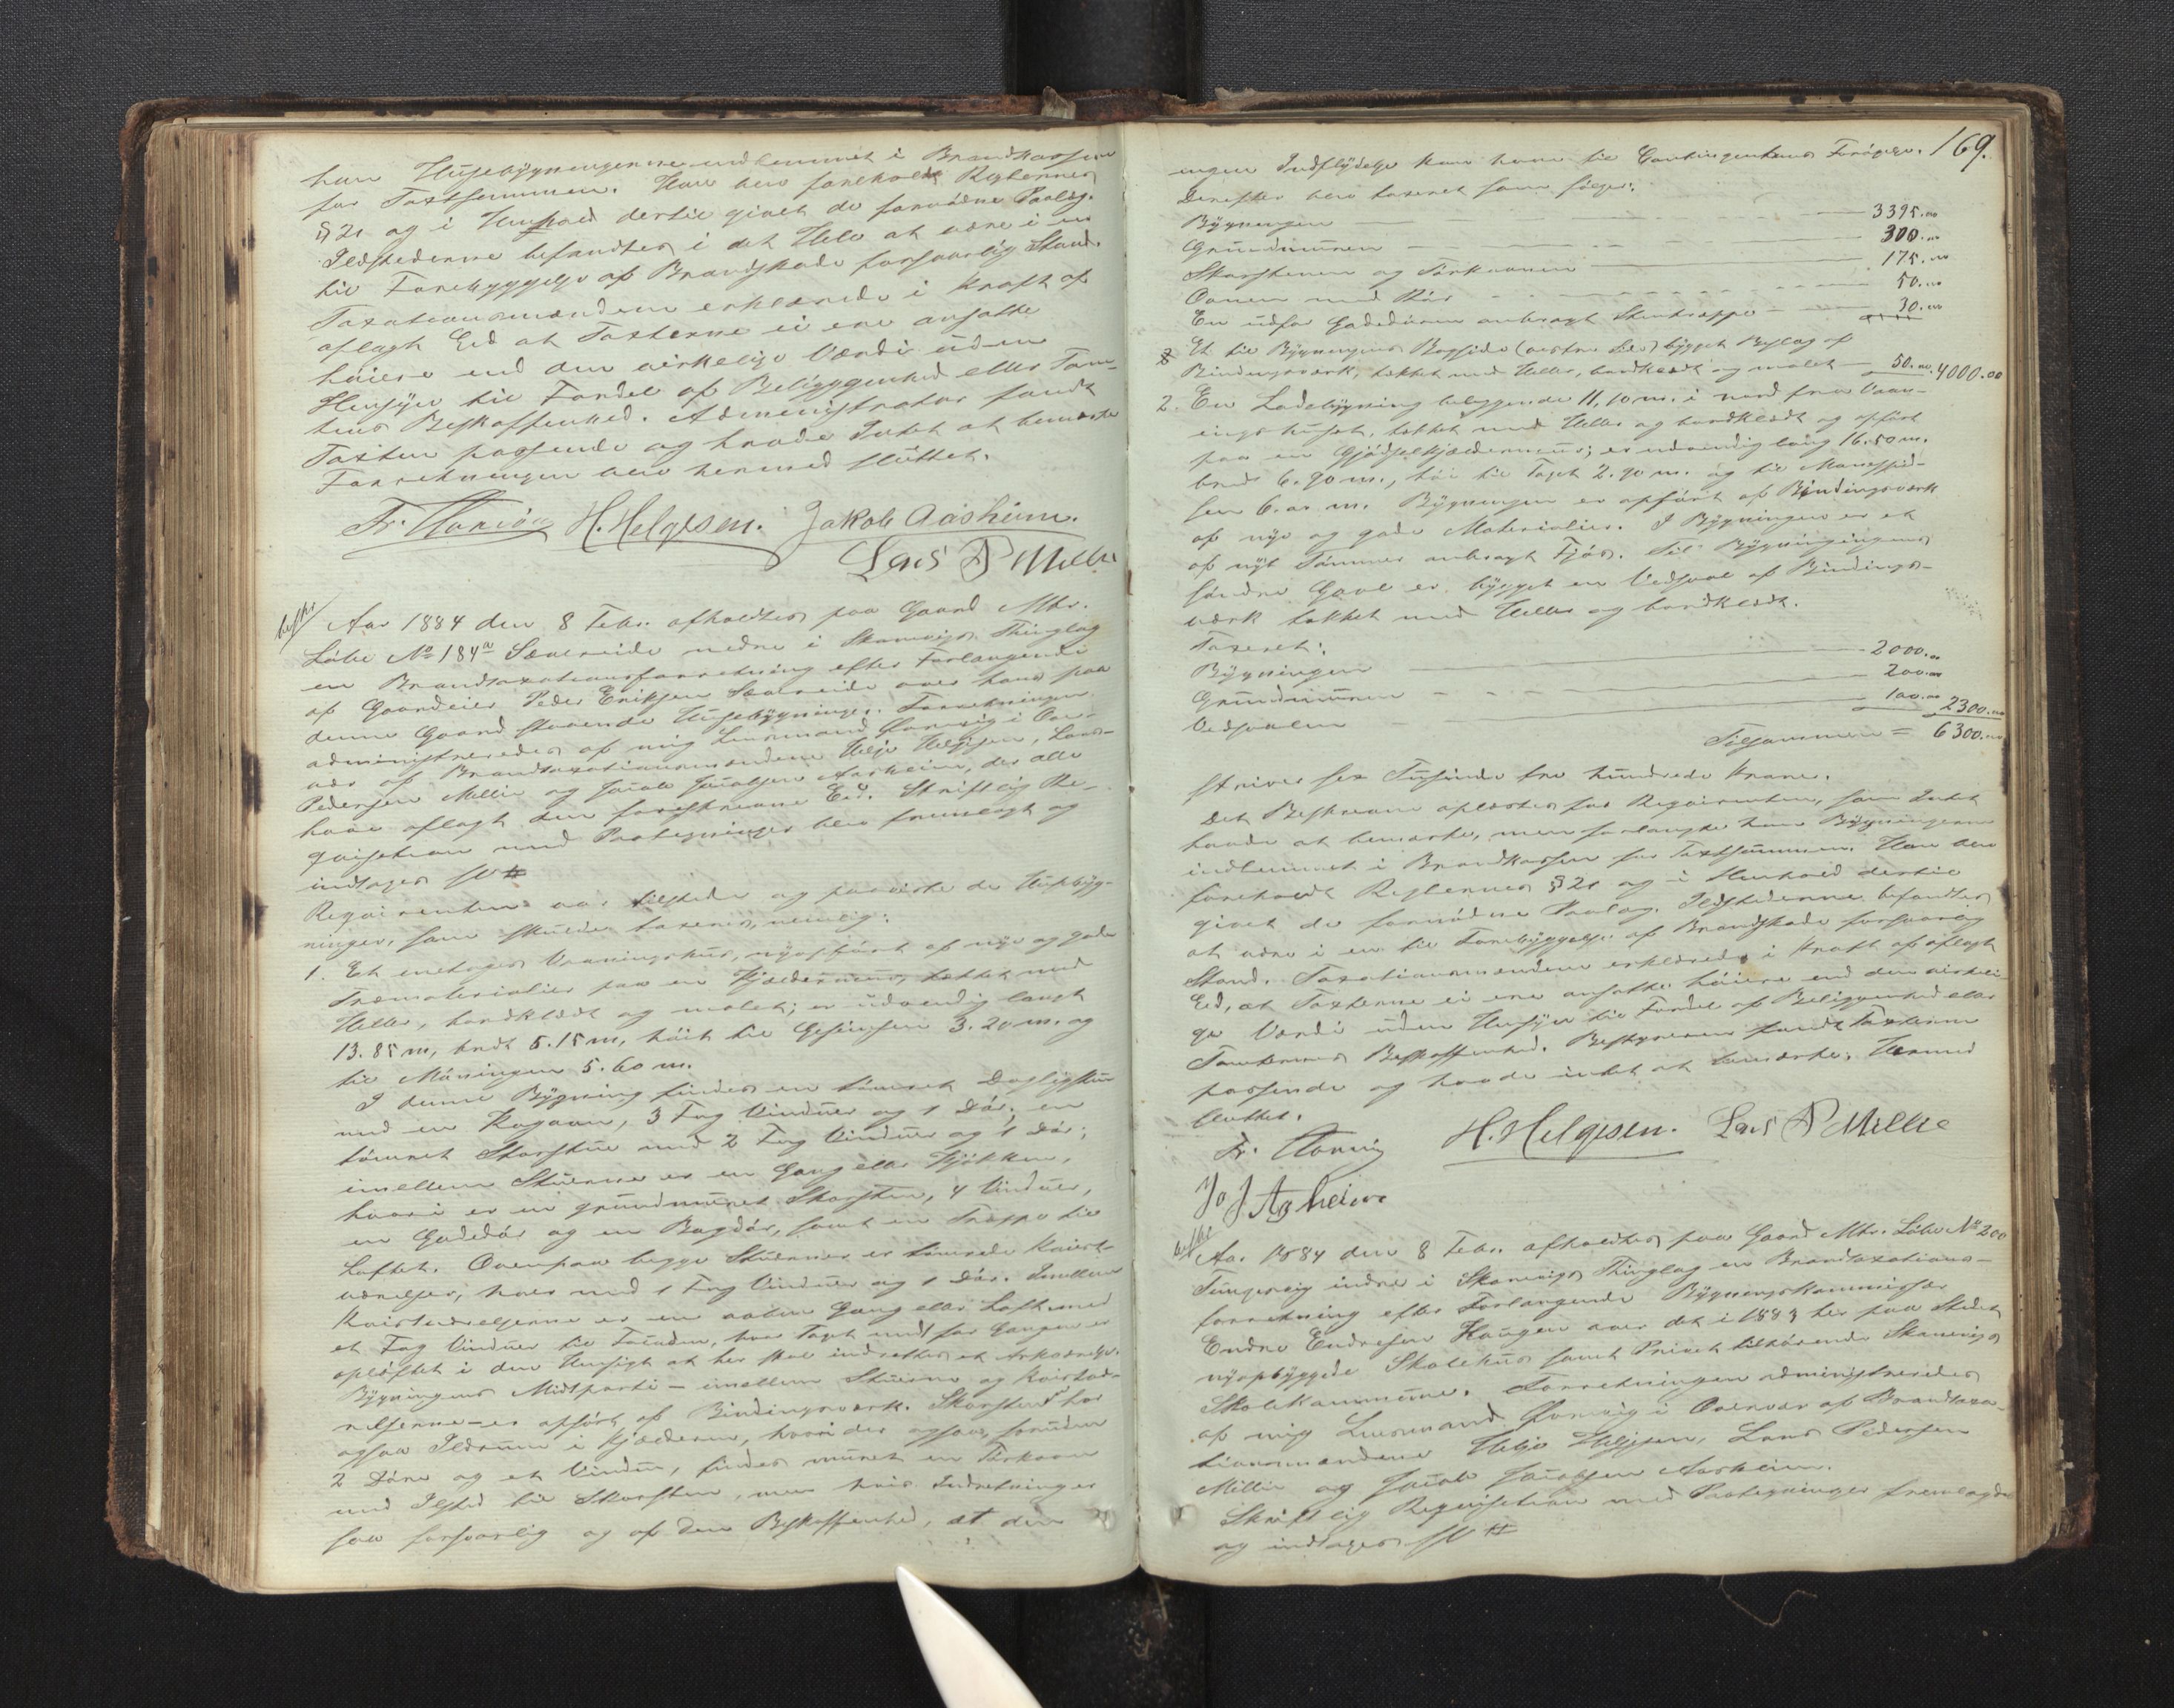 han Husebygningerne indlemmet i Brandkassen
for Taxtsummen. Han blev foreholdt Reglernes
§ 21 og i Henhold dertil givet de fornødne Paalæg.
Ildstederne befandtes i det Hele at være i en
til Forebyggelse af Brandskade forsvarlig Stand.
Taxationsmændene erklærede i Kraft af
aflagt Eed at Taxterne ei ere ansatte
høiere end den virkelige Værdi uden
Hensyn til Fordel af Beliggenhed eller Tom-
tens Beskaffenhed. Administrator fandt
Taxten passende og havde Intet at bemærke
Forretningen blev hermed sluttet.
H. Helgesen. Jakob Aasheim.
Lars P Millie
Aar 1884 den 8 Febr. afholdtes paa Gaard Mtr.
Løbe No 184a Sævereide nedre i Skonevigs Thinglag
en Brandtaxationsforretning efter Forlangende
af Gaardeier Peder Eriksen Sævereide over hans paa
denne Gaard staaende Husebygninger. Forretningen
administreredes af mig Lensmand i Over-
vær af Brandtaxationsmændene Helje Helgesen, Lars
Pedersen Millie og Jacob Jacobsen Aasheim, der alle
have aflagt den foreskrevne Eed. Skriftlig Re-
qvisition med Paategninger blev fremlagt og
indtages
Reqvirenten var tilstede og paaviste de Husebyg-
ninger, som skulde taxeres, nemlig:
1. Et enetages Vaaningshus, nyopført af nye og gode
Træmaterialier paa en Kjældermuur, tækket med
Heller, bordklædt og malet; er udvendig langt
13.85 m, bredt 5.15 m, høit til Gesimsen 3.20 m. og
til Møningen 5.60 m.
I denne Bygning findes en tømret Dagligstue
med en Kogeovn, 3 Fag Vinduer og 1 Dør; en
tømret Storstue med 2 Fag Vinduer og 1 Dør;
imellem Stuerne er en Gang eller Kjøkken,
hvori er en grundmuret Skorsten, 4 Vinduer,
en Gadedør og en Bagdør, samt en Trappe til
Loftet. Ovenpaa begge Stuerner er tømrede Kvist-
værelser, hver med 1 Fag Vinduer og 1 Dør. Imellem
Kvistværelserne er en aaben Gang eller Loft med
et Fag Vinduer til Facaden, hvor Taget midt for Gangen er
opløftet i den Hensigt at her skal indrettes et Arkværelse.
Bygningens Midtparti - imellem Stuerne og Kvistvæ-
relserne - er opført af Bindingsværk. Skorstenen har
ogsaa Ildrum i Kjælderen, hvori der ogsaa, foruden
2 Døre og et Vindu, findes muret en Tørkeovn
med Ilsted til Skorsten, men hvis Indretning er
saa forsvarlig og af den Beskaffenhed, at den
169.
ingen Indflydelse kan have til Contingentens Forøgelse.
Derefter blev taxeret som følger:
Bygningen 3395.00
Grundmuren 300.00
Skorstenen og Tørkeovnen 175.00
Ovnen med Rør 50.00
En udfor Gadedøren anbragt Stentrappe 30.00
Et til Bygningens Bagside (vestre Side) bygget Beslag af
Bindingsværk, tækket med Heller, bordklædt og malet 50.00 4000.00
2. En Ladebygning beliggende 11,10 m. i nord fra Vaan-
ingshuset, tækket med Heller og bordklædt og opført
paa en Gjødselkjældermuur; er udvendig lang 16.50 m.
bred 6.90 m., høi til Taget 2.90 m. og til Mønespid-
sen 6.00 m. Bygningen er opført af Bindingsværk
af nye og gode Materialier. I Bygningen er et
af nyt Tømmer anbragt Fjøs. Til Bygningingens
søndre Gavl er bygget en Vedsval af Bindings-
værk tækket med Heller og bordklædt.
Taxeret:
Bygningen 2000.00
Grundmuren 200.00
Vedsvalen 100.00 2300.00
Tilsammen = 6300.00
skriver sex Tusinde tre hundrede Kroner.
Det Beskrevne oplæstes for Reqvirenten, som Intet
havde at bemærke, men forlangte han Bygningerne
indlemmet i Brandkassen for Taxtsummen. Han blev
foreholdt Reglernes § 21 og i Henhold dertil
givet de fornødne Paalæg. Ildstederne befandtes
at være i en til Forebyggelse af Brandskade forsvarlig
Stand. Taxationsmændene erklærede i Kraft af aflagt
Eed, at Taxterne ei ere ansatte høiere end den virkeli-
ge Værdi uden Hensyn til Fordel af Beliggenhed eller
Tomternes Beskaffenhed. Bestyreren fandt Taxterne
passende og havde intet at bemærke. Hermed
sluttet.
H. Helgesen. Lars P Millie
Ja J Asheim
Aar 1884 den 8 Febr. afholdtes paa Gaard Mtr. Løbe No 200
indre i Skonevigs Thinglag en Brandtaxations-
forretning efter Forlangende Bygningskommissær
Endre Endresen Haugen over det i 1883 her paa Stedet
nyopbyggede Skolehus samt Privet tilhørende Skonevigs
Skolekommune. Forretningen administreredes
af mig Lensmand i Overvær af Brandtaxa-
tionsmændene Helje Helgesen, Lars Pedersen
Millie og Jacob Jacobsen Aasheim.
Skriftlig Reqvisition med Paategninger fremlagdes
og indtages